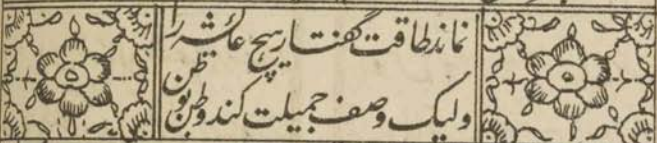 نماند طاقت گفتار هیچ عائشه را
ولیک وصف جمیلت کند وظن بوظن